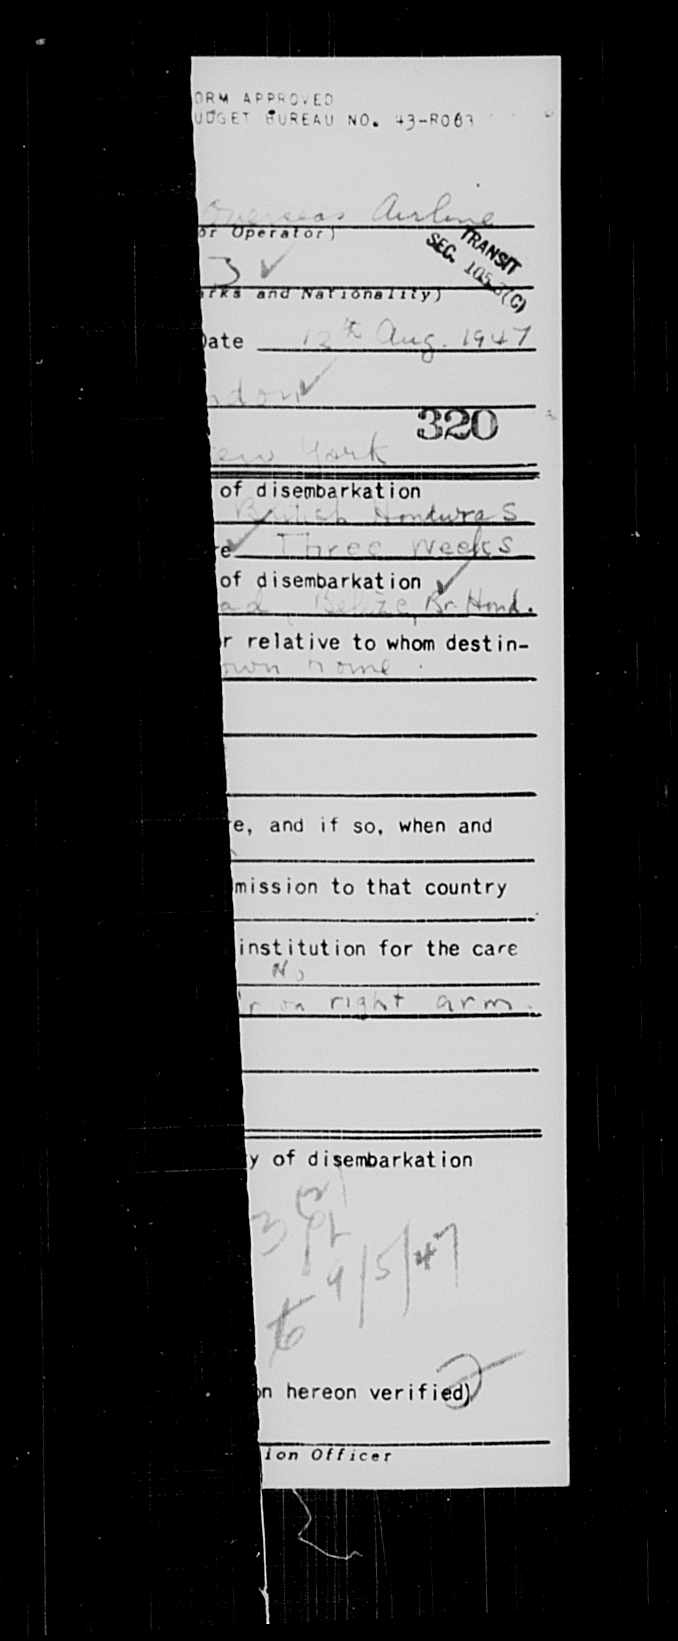 ORM APPROVED
UDGET BUREAU NO. 43-R083
Overseas Airline
or Operator)
TRANSIT
SEC. 105.3(C)
3 ✓
arks and Nationality)
Date 12th Aug. 1947
ndon ✓
320
ew York
of disembarkation
British Honduras
re ✓ Three Weeks
of disembarkation ✓
ad, Belize, Br. Hond.
r relative to whom destin-
own home.
e, and if so, when and
mission to that country
institution for the care
No
r on right arm.
y of disembarkation
3
9/5/47
on hereon verified)
ion Officer